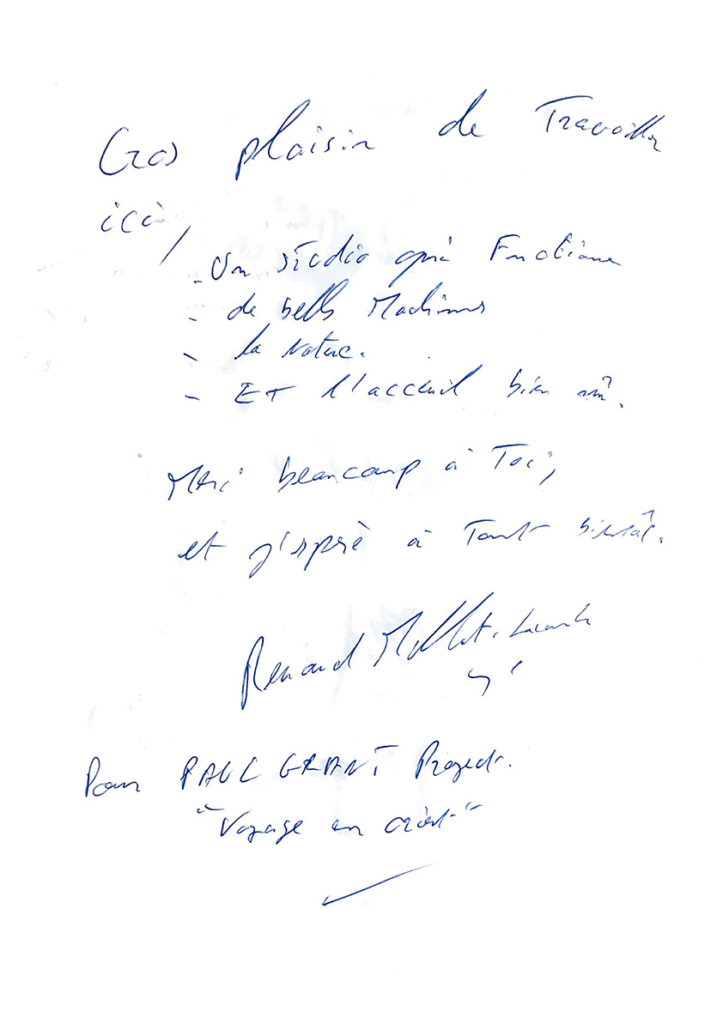 Gros plaisir de Travailler
ici,
- Un studio qui Fonctionne
- de belles Machines
- la nature.
- ET l'acceuil bien sûr.
Merci beaucoup à Toi,
et j'espère à Tout bientôt.
Renaud
Pour PAUL GRANT Project.
"Voyage en orient"